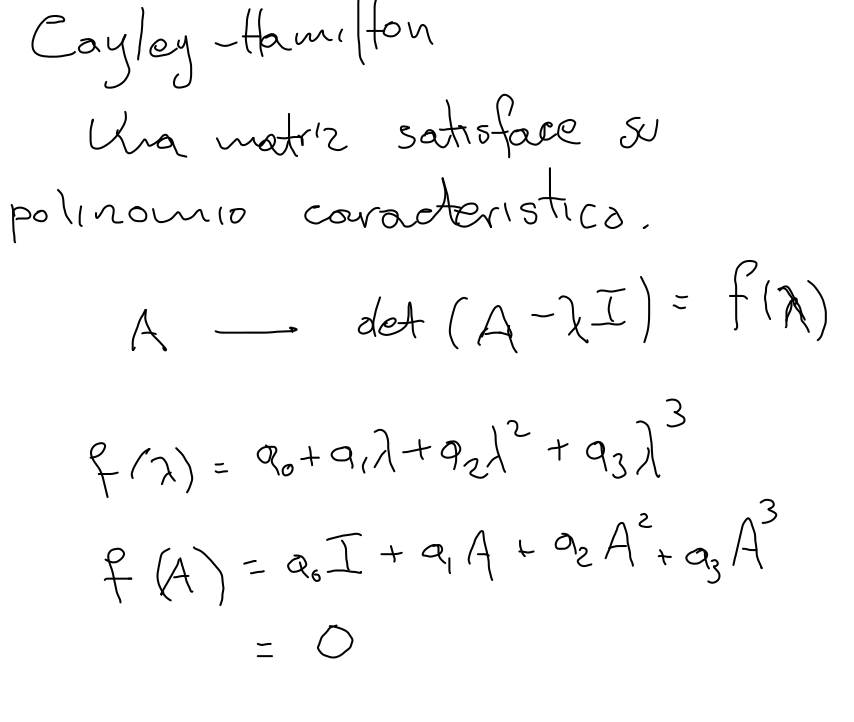 Cayley-Hamilton
Una matriz satisface su
polinomio caracteristico.
A — det (A-λI) = f(λ)
f(λ) = a₀+a₁λ+a₂λ² + a₃λ³
f(A) = a₀I + a₁A + a₂A² + a₃A³
= 0